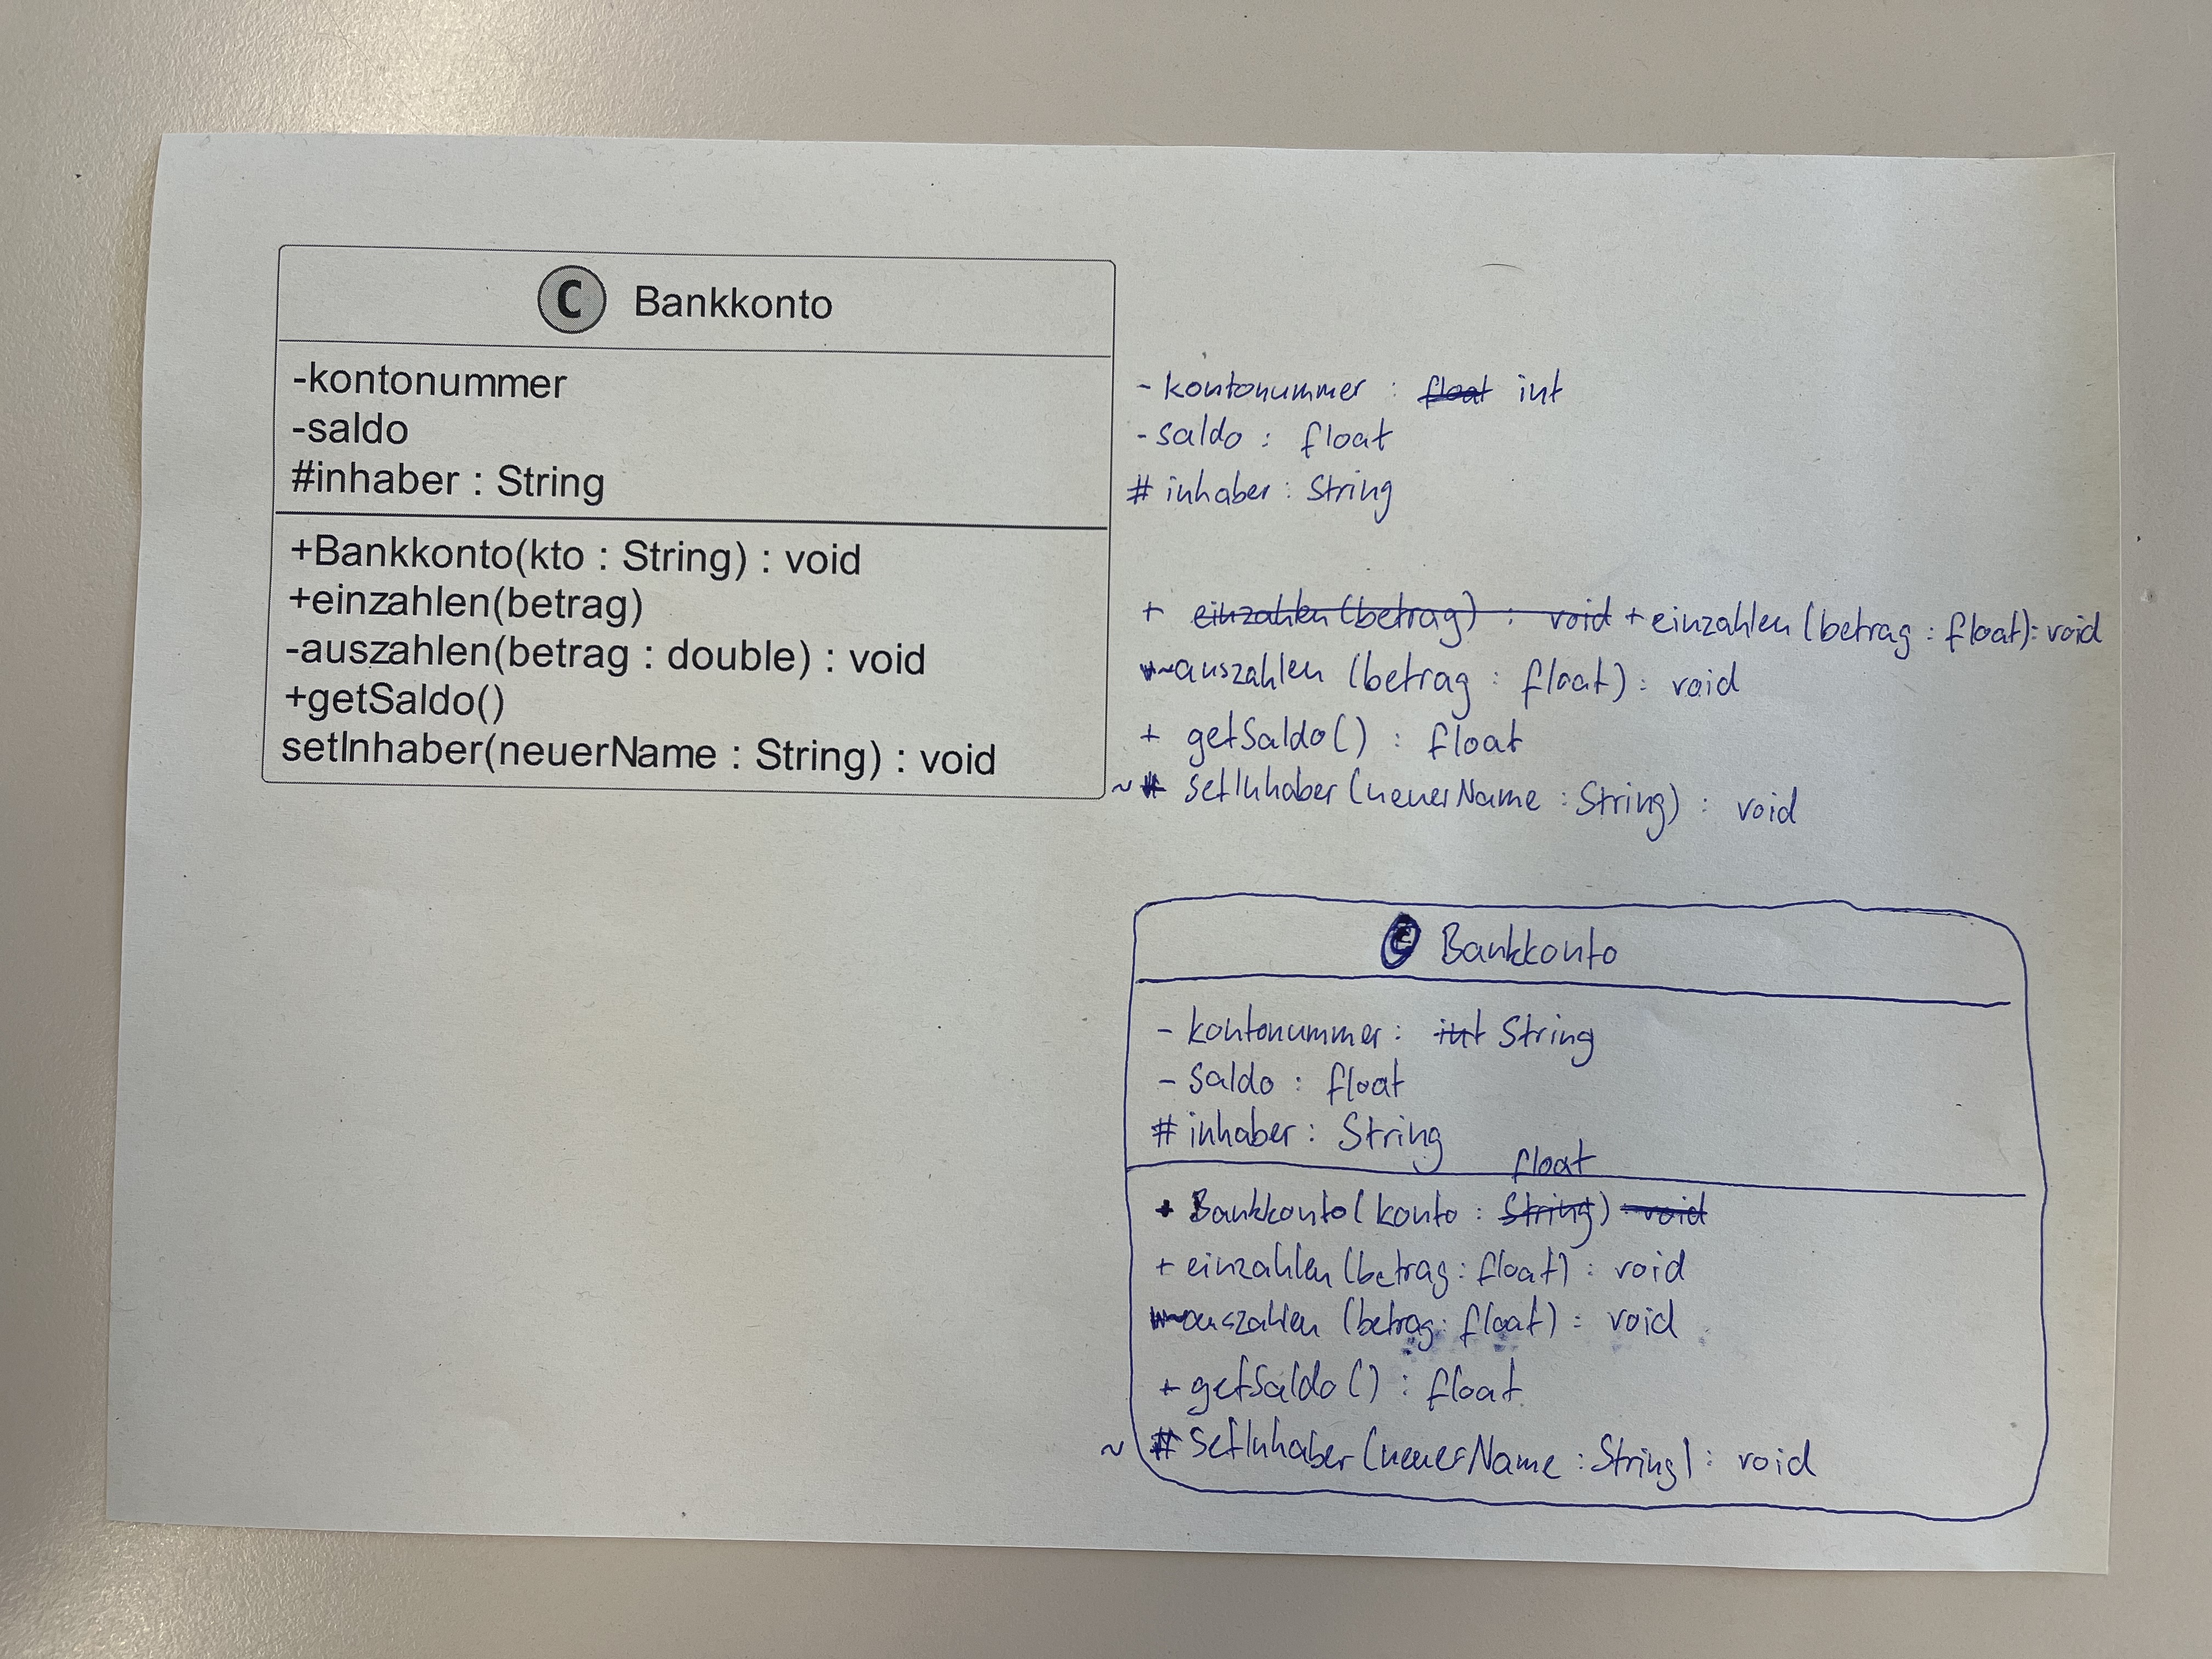 C Bankkonto
-kontonummer
-saldo
#inhaber : String
+Bankkonto(kto : String) : void
+einzahlen(betrag)
-auszahlen(betrag : double) : void
+getSaldo()
setInhaber(neuerName : String) : void
- kontonummer : float int
- saldo : float
# inhaber : String
+ einzahlen (betrag) : void + einzahlen (betrag : float) : void
~ auszahlen (betrag : float) : void
+ getSaldo() : float
~ # setInhaber (neuerName : String) : void
C Bankkonto
- kontonummer : int String
- saldo : float
# inhaber : String
float
+ Bankkonto ( konto : String) : void
+ einzahlen (betrag : float) : void
~ auszahlen (betrag : float) : void
+ getSaldo () : float
~ # setInhaber (neuerName : String) : void